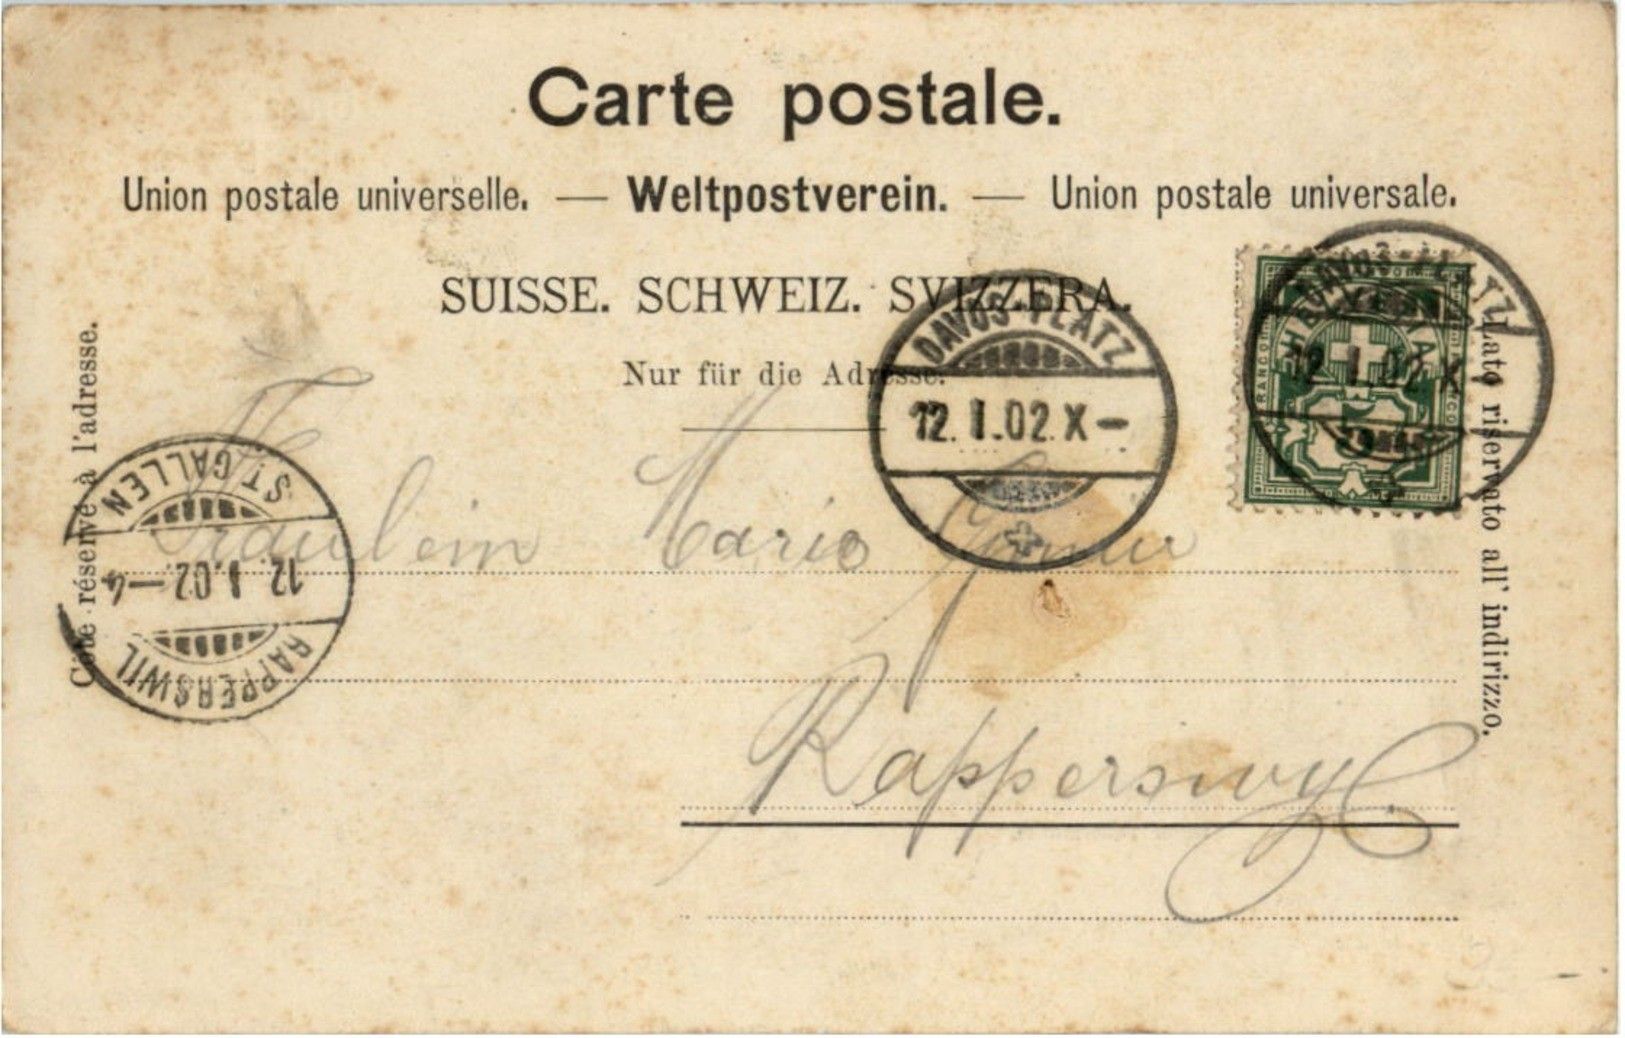 Carte postale.
Union postale universelle. — Weltpostverein. — Union postale universale.
SUISSE. SCHWEIZ. SVIZZERA.
Nur für die Adresse.
Côté réservé à l'adresse.
Lato riservato all' indirizzo.
DAVOS-PLATZ
12. I. 02. X –
DAVOS-PLATZ
12. I. 02. X –
FRANCO
5
ST. GALLEN
12. I. 02. – 4
RAPPERSWIL
Fräulein Marie
Rapperswyl.